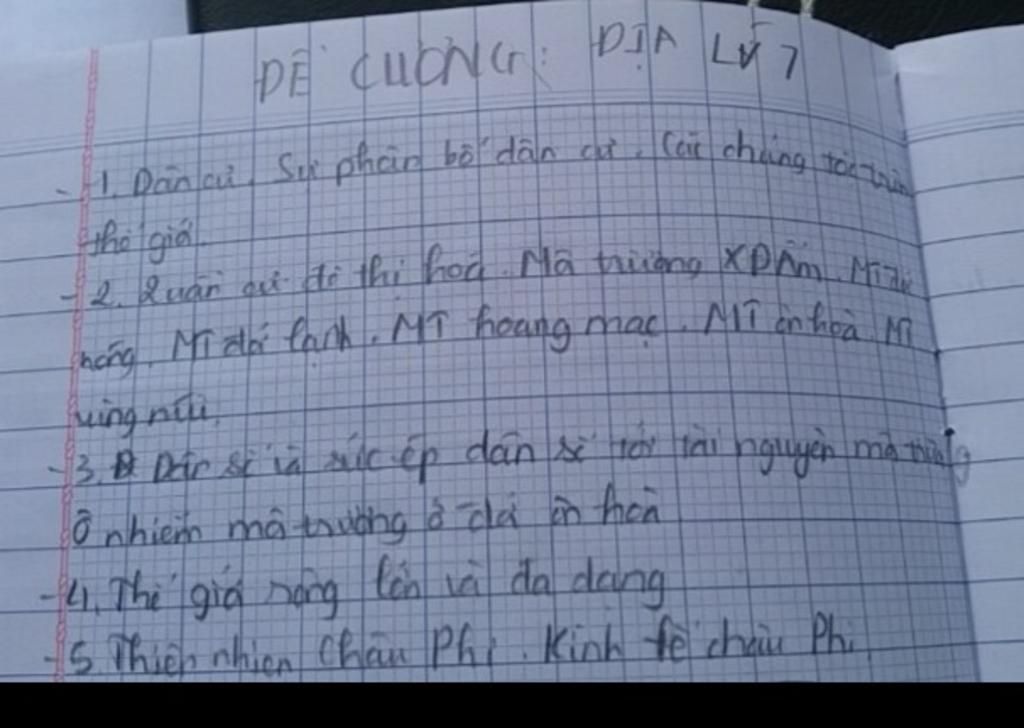 ĐỀ CƯƠNG: ĐỊA LÝ 7
- 1. Dân cư. Sự phân bố dân cư. Các chủng tộc trên
thế giới.
- 2. Quần cư đô thị hoá. Môi trường XĐÂm. MT đới
nóng. MT đới lạnh. MT hoang mạc. MT ôn hoà. MT
vùng núi.
- 3. Dân số và sức ép dân số tới tài nguyên môi trường
Ô nhiễm môi trường ở đới ôn hoà
- 4. Thế giới rộng lớn và đa dạng
- 5. Thiên nhiên Châu Phi. Kinh tế châu Phi